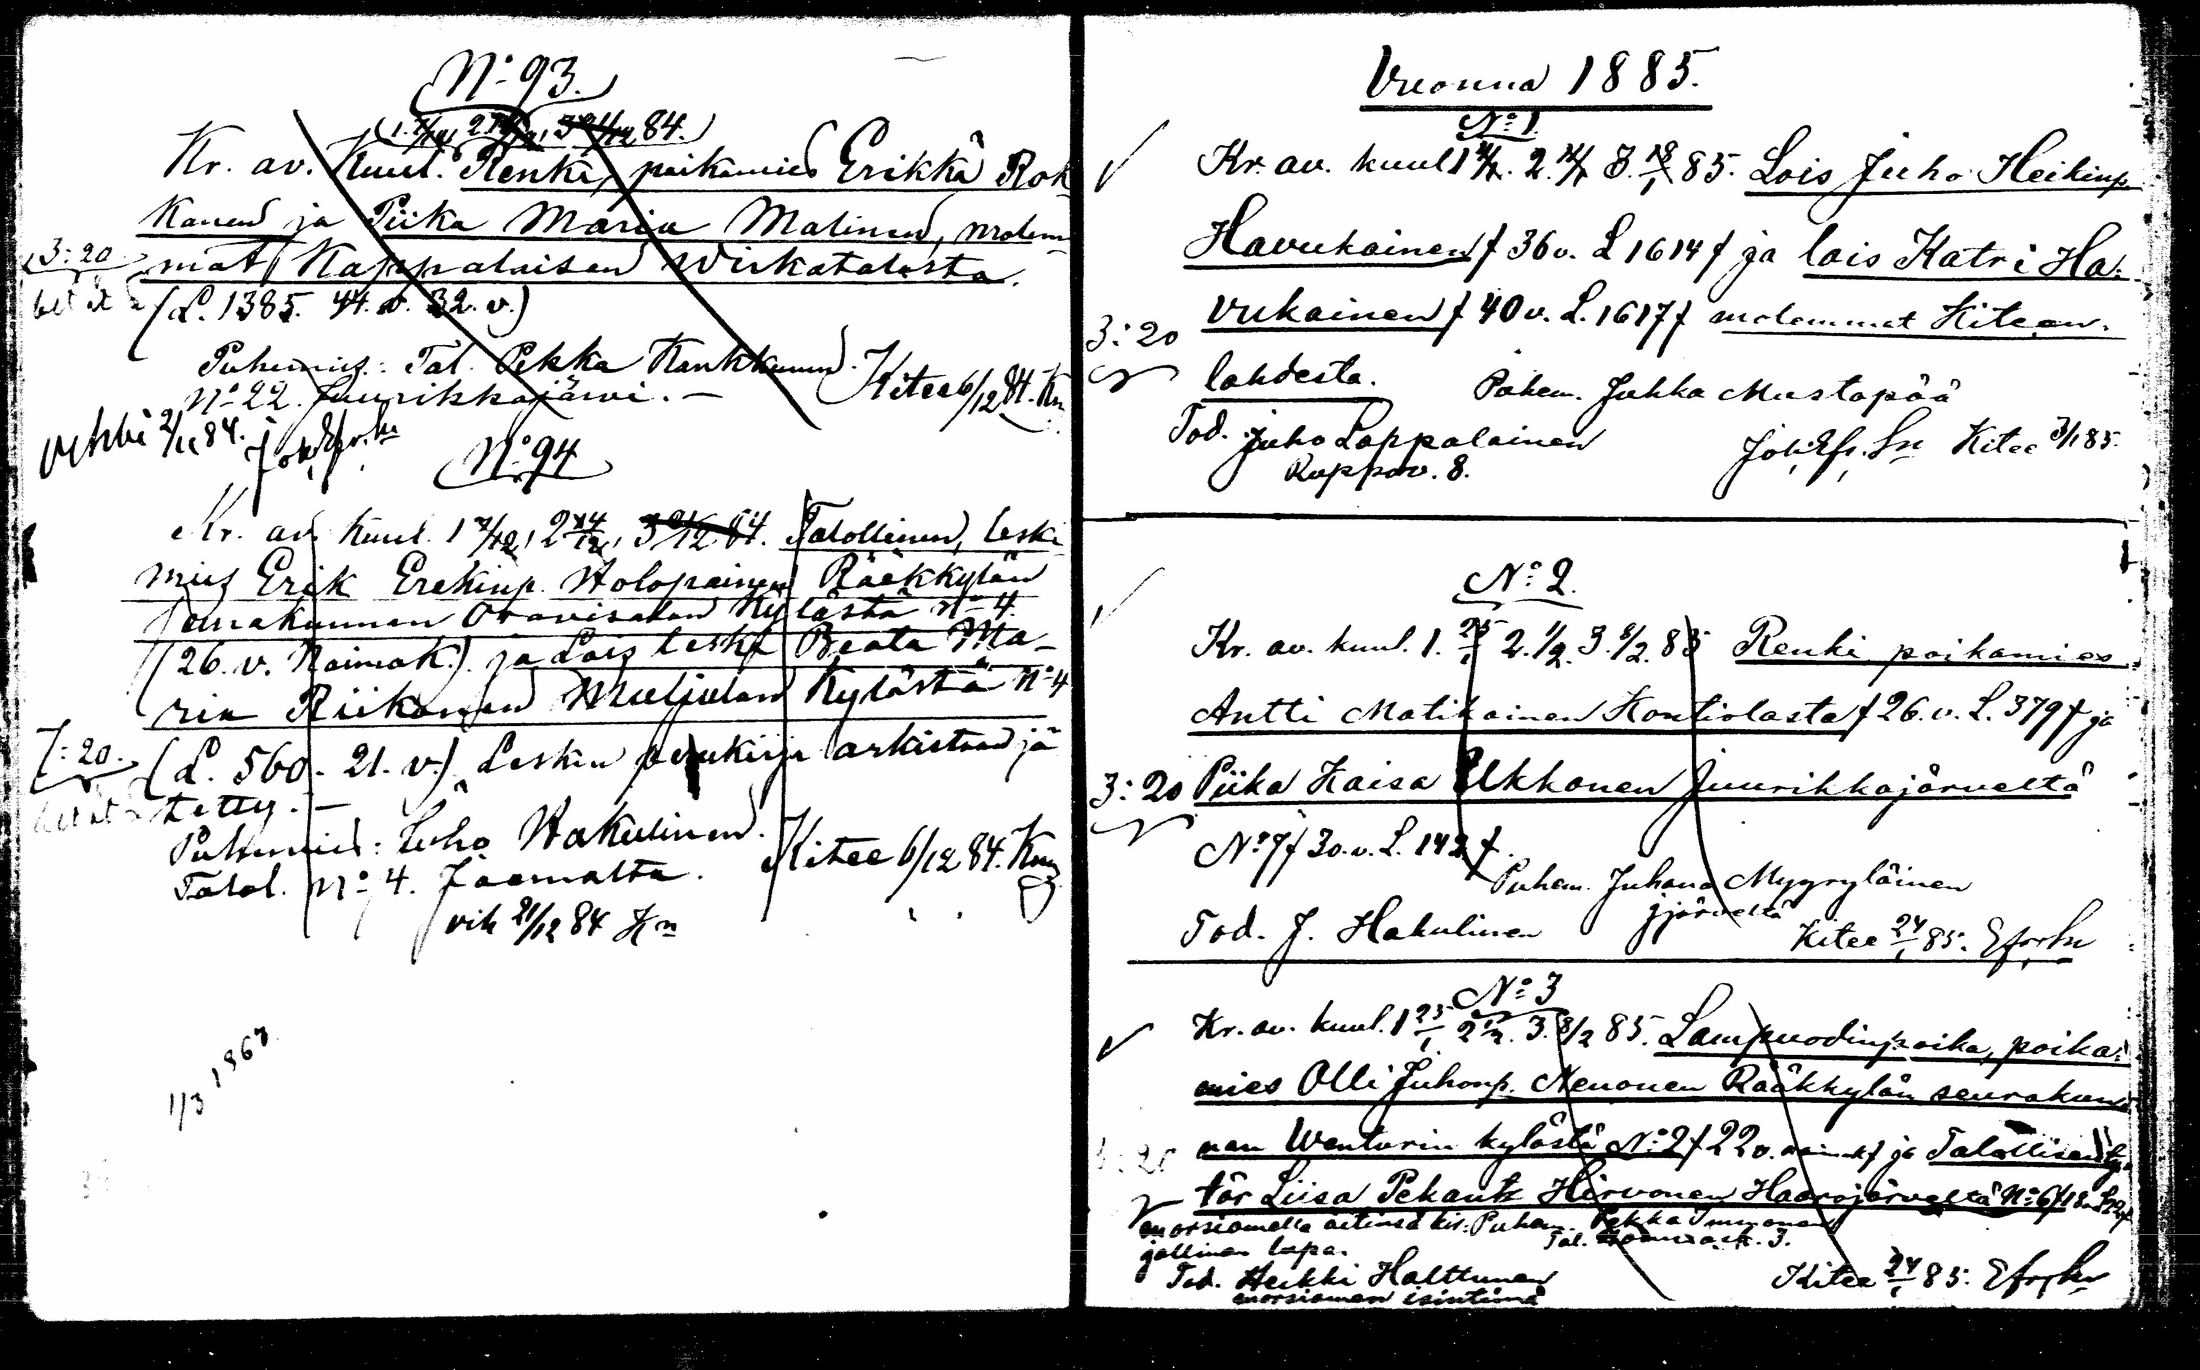 N:o 93.
(1. 7/12, 2 14/12, 3 21/12 84.)
Kr. av. Kuul. Renki, poikamies Erikki Rok
kanen ja Piika Maria Matinen, molem-
mat Kappalaisen Wirkatalosta.
3:20
(L. 1385. 44. v. 32. v.)
Puhemies: Tal. Pekka Kankkunen.
N:o 22. Juurikkajärvi. —
Kitee 6/12 84. Kn
84.
N:o 94
Kr. av. Kuul. 1 7/12, 2 14/12, 3 21/12 84. Talollinen, leski
mies Erik Erekinp. Holopainen Rääkkylän
seurakunnan Oravisalon Kylästä N:o 4.
(26. v. Naimak.) ja Lois leski Beata Ma-
ria Riikonen Muljulan Kylästä N:o 4
7:20.
(L. 560. 21. v.) Lesken perukirja arkistoon jä
tetty. —
Puhemies: Juho Hakulinen.
Talol. N:o 4. Jaamalta.
Kitee 6/12 84. Kn
vih 21/12 84 Kn
1/3 1967
Vuonna 1885.
N:o 1.
Kr. av. kuul 1 4/1. 2. 11/1 3. 18/1 85. Lois Juho Heikinp
Havukainen f 36 v. L 1614 f ja lois Katri Ha-
vukainen f 40 v. L. 1617 f molemmat Kitean-
3:20
lahdesta.
Puhem. Jukka Mustapää
Tod. Juho Lappalainen
Ruppov. 8.
Kitee 3/1 85.
N:o 2.
Kr. av. kuul. 1. 25/1 2. 1/2. 3. 8/2. 85 Renki poikamies
Antti Matikainen Kontiolasta f 26. v. L. 379 f ja
3:20 Piika Kaisa Ukkonen Juurikkajärveltä
N:o 7 f 30. v. L. 142 f.
Puhem. Juhana Mygryläinen
Jjärveltä
Tod. J. Hakulinen
Kitee 24/1 85.
N:o 3
Kr. av. kuul. 1 25/1 2 1/2. 3. 8/2 85. Lampuodinpoika, poika-
mies Olli Juhonp. Nenonen Rääkkylän seurakun-
nan Wenturin kylästä N:o 2 f 22 v. naimk f ja Talollisen ty-
3:20
tär Liisa Pekantr Hirvonen Haarajärveltä N:o 6 f 18 v.
morsiamella äitinsä kir- Puhem. Pekka Immonen
jallinen lupa.
Tal. 3.
Tod. Heikki Halttunen
morsiamen isintimä
Kitee 24/1 85.